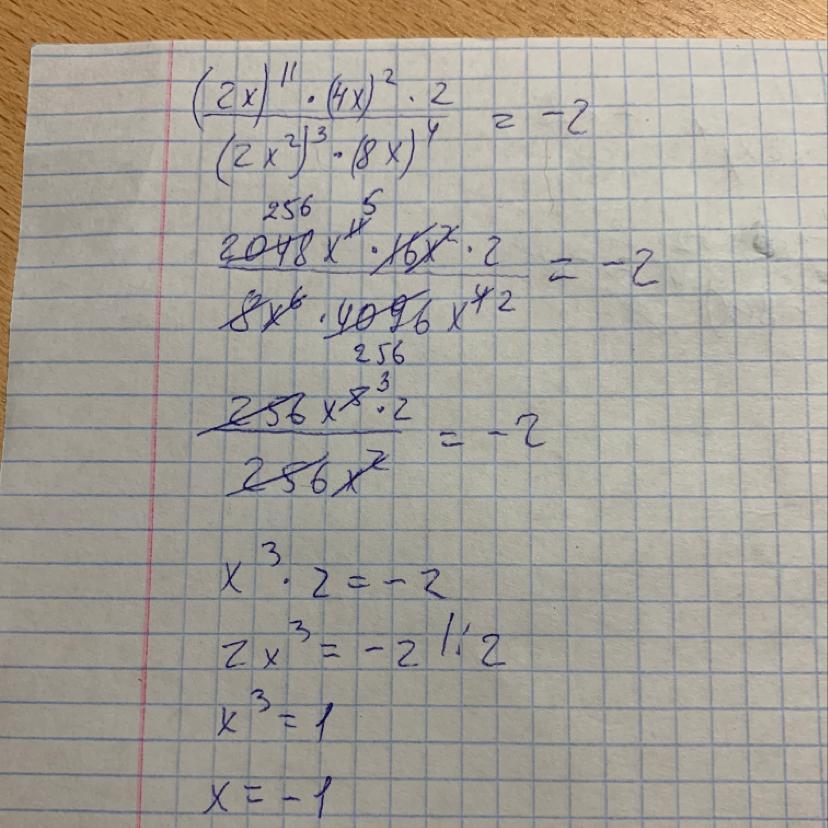 (2x)^11 · (4x)^2 · 2 / (2x^2)^3 · (8x)^4 = -2
256 5
2048x^11 · 16x^2 · 2 / 8x^6 · 4096x^4 2 = -2
256
256x^5 3 · 2 / 256x^2 = -2
x^3 · 2 = -2
2x^3 = -2 |: 2
x^3 = 1
x = -1